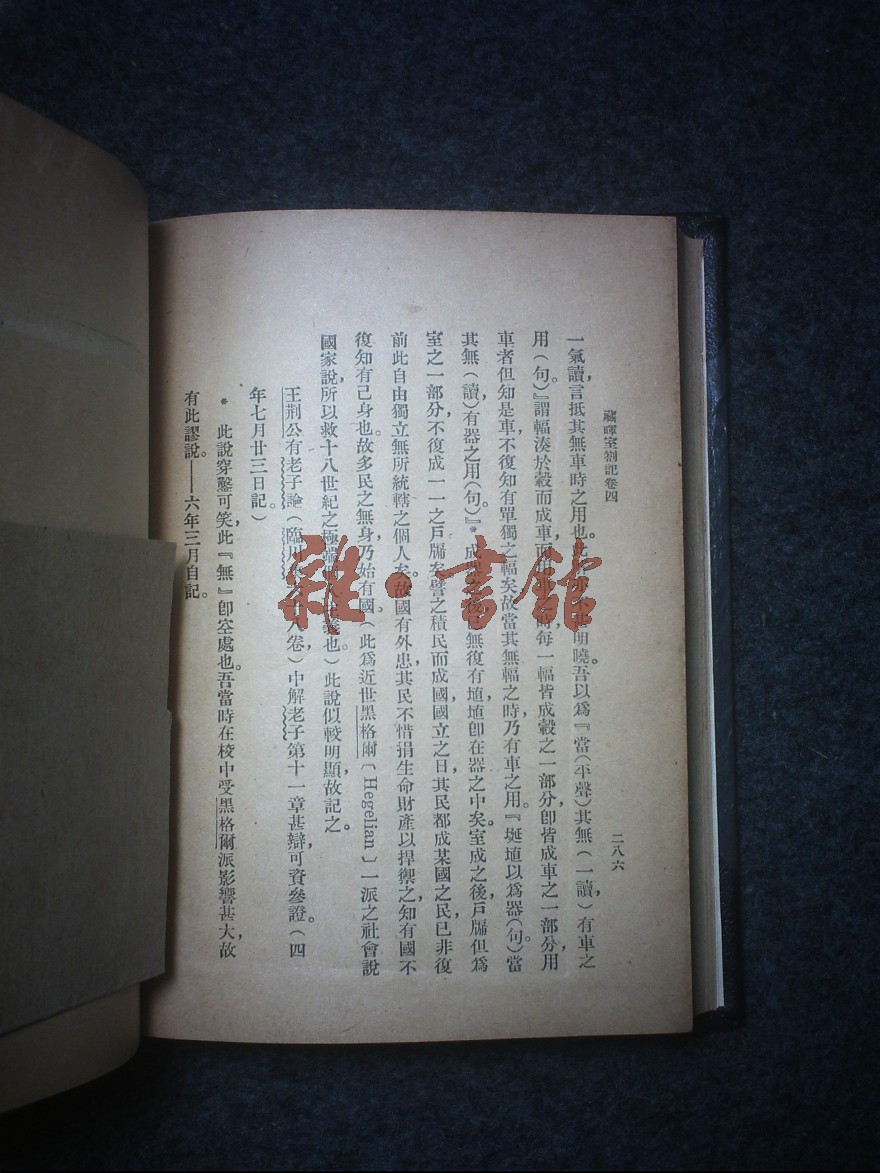 藏暉室劄記卷四
二八六
一氣讀，言抵其無車時之用也。此解亦不甚明曉。吾以爲『當（平聲）其無（一讀），有車之
用（句）。』謂輻湊於轂而成車，而用車之時，每一輻皆成轂之一部分，即皆成車之一部分，用
車者但知是車，不復知有單獨之輻矣。故當其無輻之時，乃有車之用。『埏埴以爲器（句），當
其無（讀），有器之用（句）。』*成器之後，已無復有埴，埴即在器之中矣。室成之後，戶牖但爲
室之一部分，不復成一一之戶牖矣。譬之積民而成國，國立之日，其民都成某國之民，已非復
前此自由獨立無所統轄之個人矣。故國有外患，其民不惜捐生命財產以捍禦之，知有國不
復知有己身也。故多民之無身，乃始有國（此爲近世黑格爾〔Hegelian〕一派之社會說
國家說，所以救十八世紀之極端個人主義也）。此說似較明顯，故記之。
王荆公有老子論（臨川集六十八卷）中解老子第十一章甚辯，可資參證。（四
年七月廿三日記。）
*此說穿鑿可笑，此『無』即空處也。吾當時在校中受黑格爾派影響甚大，故
有此謬說。——六年三月自記。
雜·書館